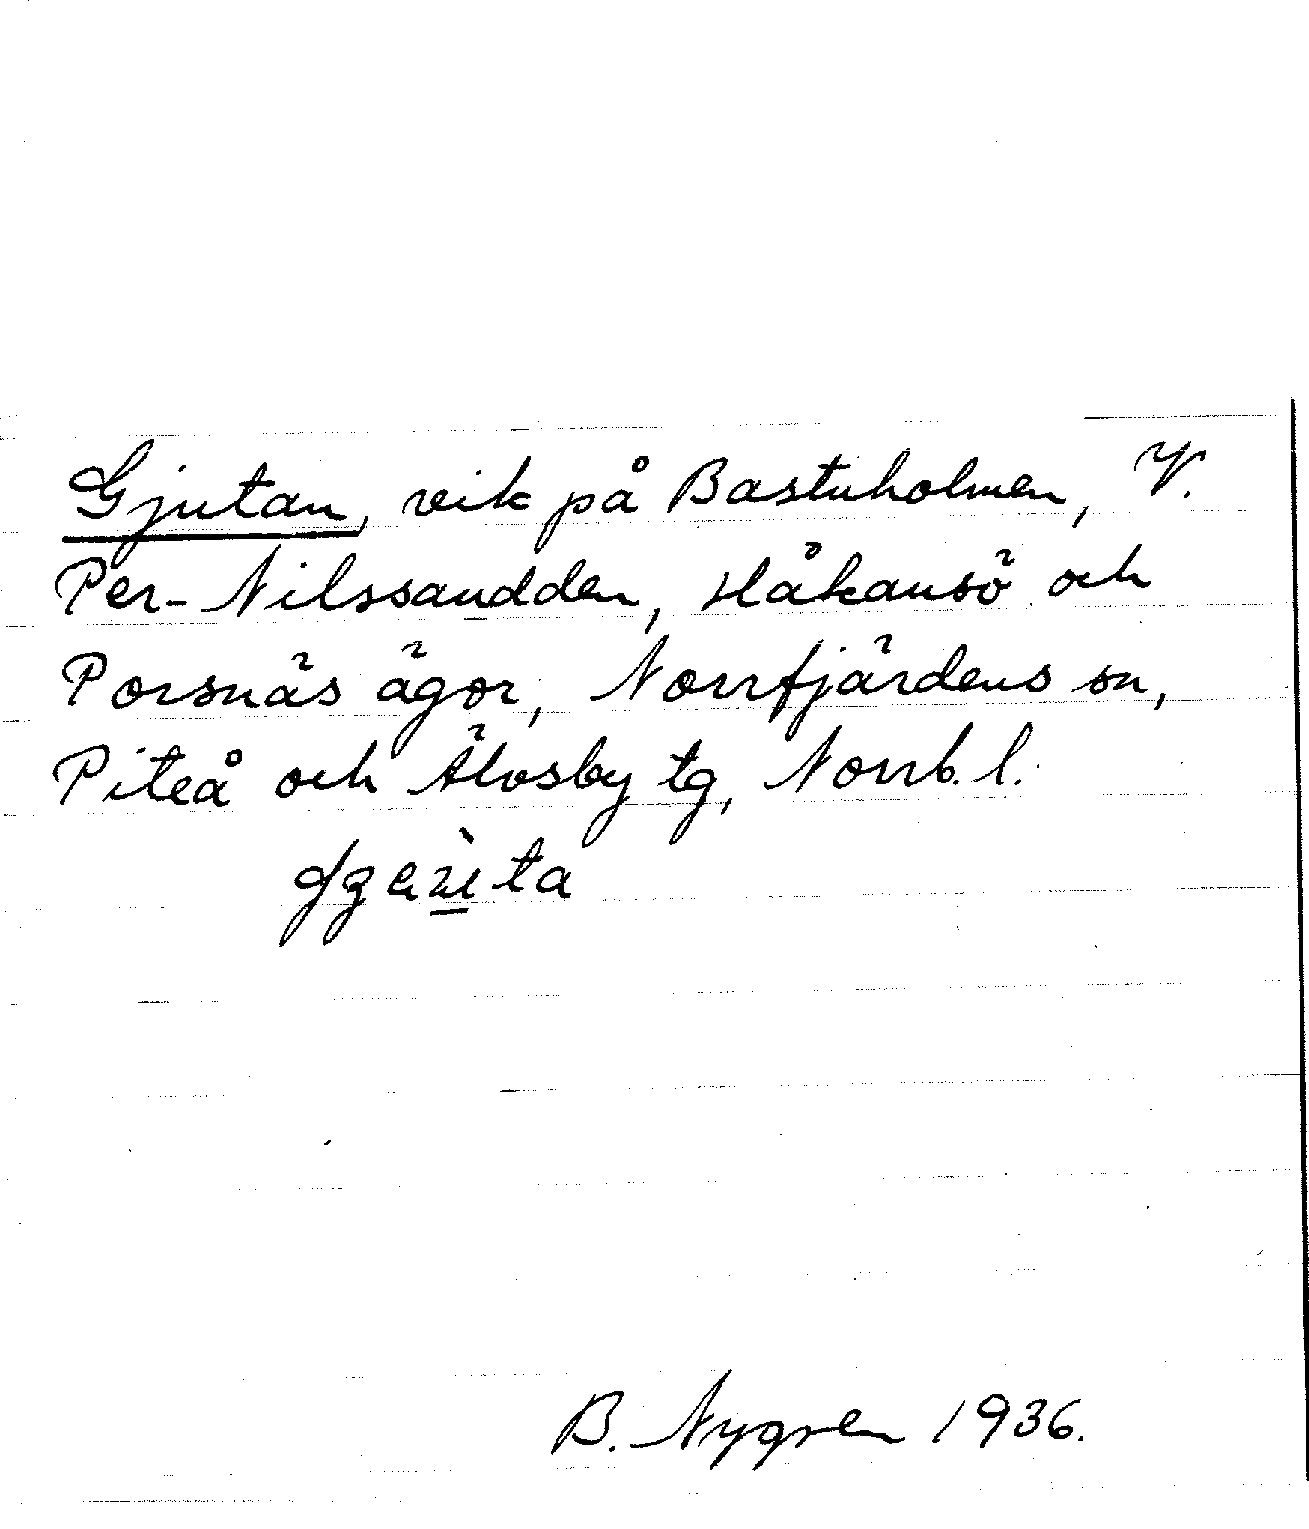 Gjutan, vik på Bastuholmen, V.
Per-Nilssandden, Håkansö och
Porsnäs ägor, Norrfjärdens sn,
Piteå och Älvsby tg, Norrb. l.
B. Nygren 1936.